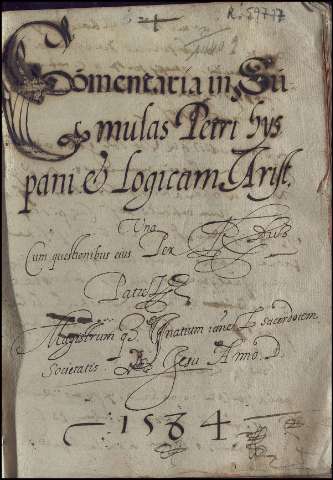 R. 59717
Comentaria in Sū
mulas Petri hys
pani & Logicam Arist.
Una
Cum questionibus eius Per R dus
Patre
Magistrum Ignatium sacerdotem
Societatis Jesu Anno D.
1584